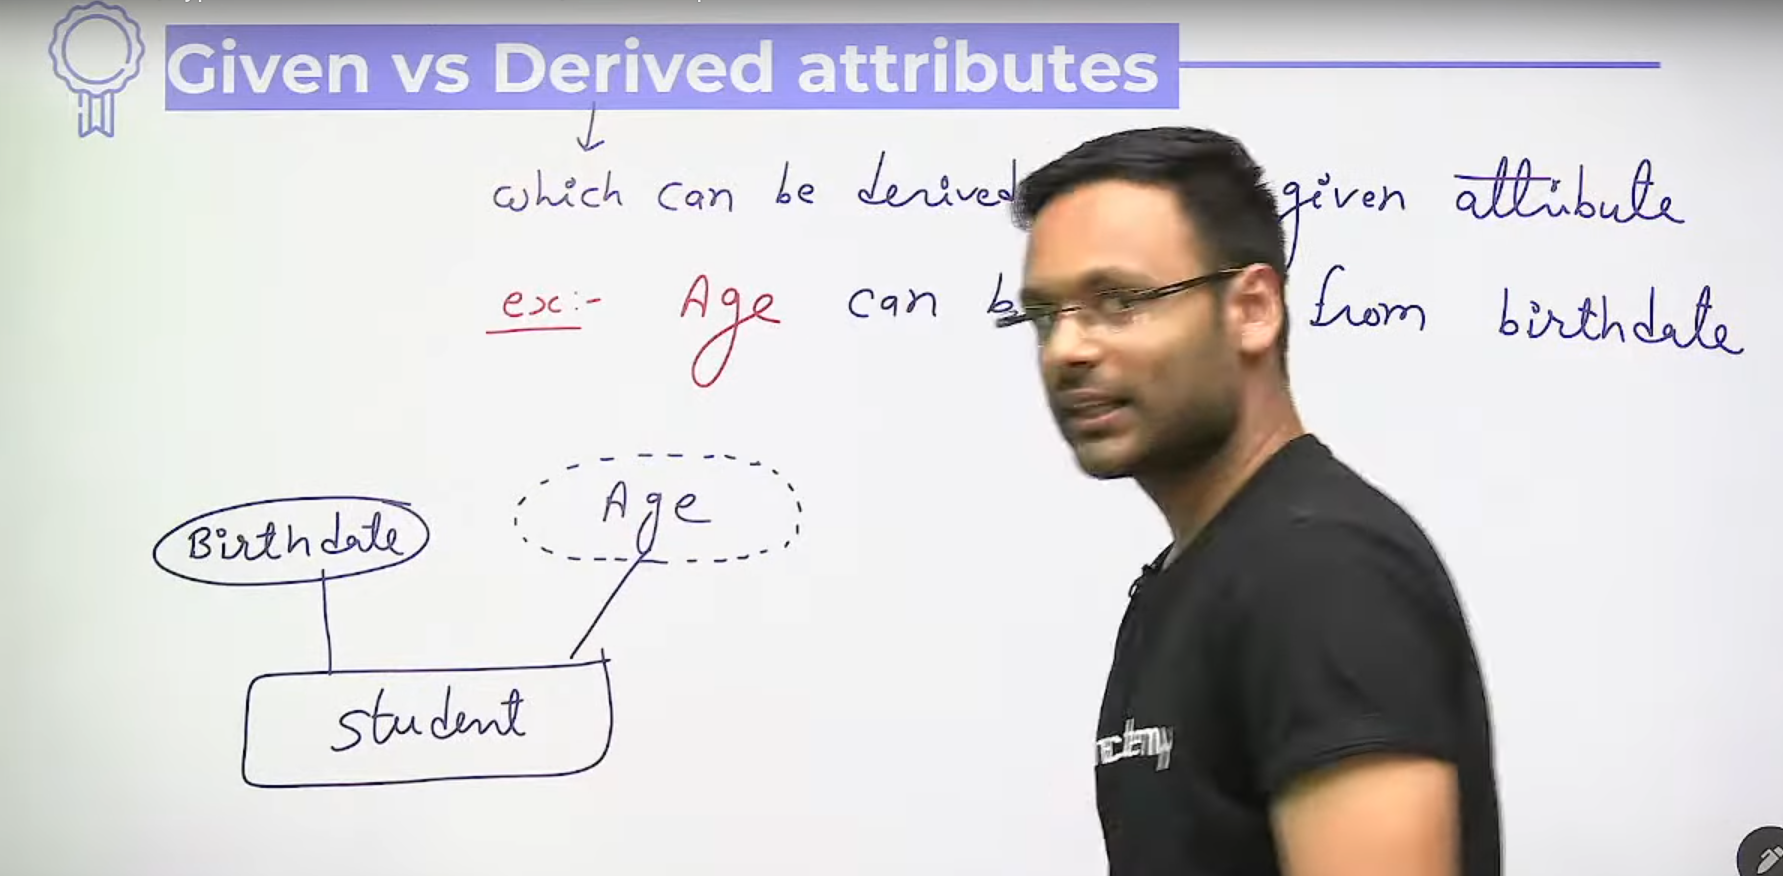 Given vs Derived attributes
which can be derived given attribute
ex:- Age can from birthdate
Birthdate
Age
student